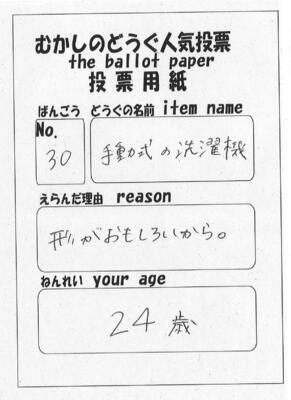 むかしのどうぐ人気投票
the ballot paper
投票用紙
ばんごう どうぐの名前 item name
No.
30
手動式の洗濯機
えらんだ理由 reason
形がおもしろいから。
ねんれい your age
24歳